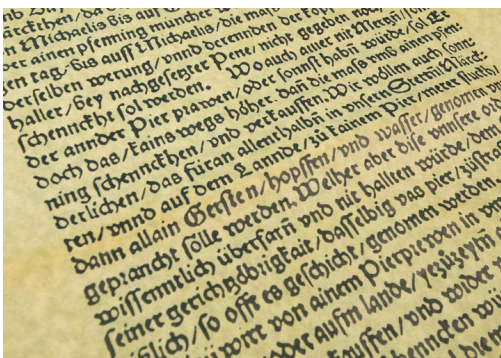 n Michaelis bis auf G
ainen pfenning müncher w
en tag/bis auff Michaelis/die maß
derselben werung/vnnd derennden der kopf
haller/bey nachgesetzter Pene/nicht gegeben noch
schenckht sol werden. Wo auch ainer mit Mertzn/
der annder Pier prawen/oder sonnst habñ würde/sol Er
doch das/kains wegs höher/dañ die maß vmb ainen pfen
ning schenckhen/vnd verkauffen. Wir wöllen auch sonn
derlichen/das füran allenthalbñ in vnsern Stettñ/Märck
ten/vnnd auf dem Lannde/zů kainem Pier/merer stuckh
dann allain Gersten/hopffen/vnd wasser/genomen
gepraucht sölle werden. Welher aber dise vnnsere
wissenntlich überfarñ vnd nit hallten würde/
seiner gerichtzöbrigkait/dasselbig vas pier/zůstra
so offt es geschicht/genomen werden
wirt von ainem Pierprewen in
oder aufm lande/
kauffen/vnd wider